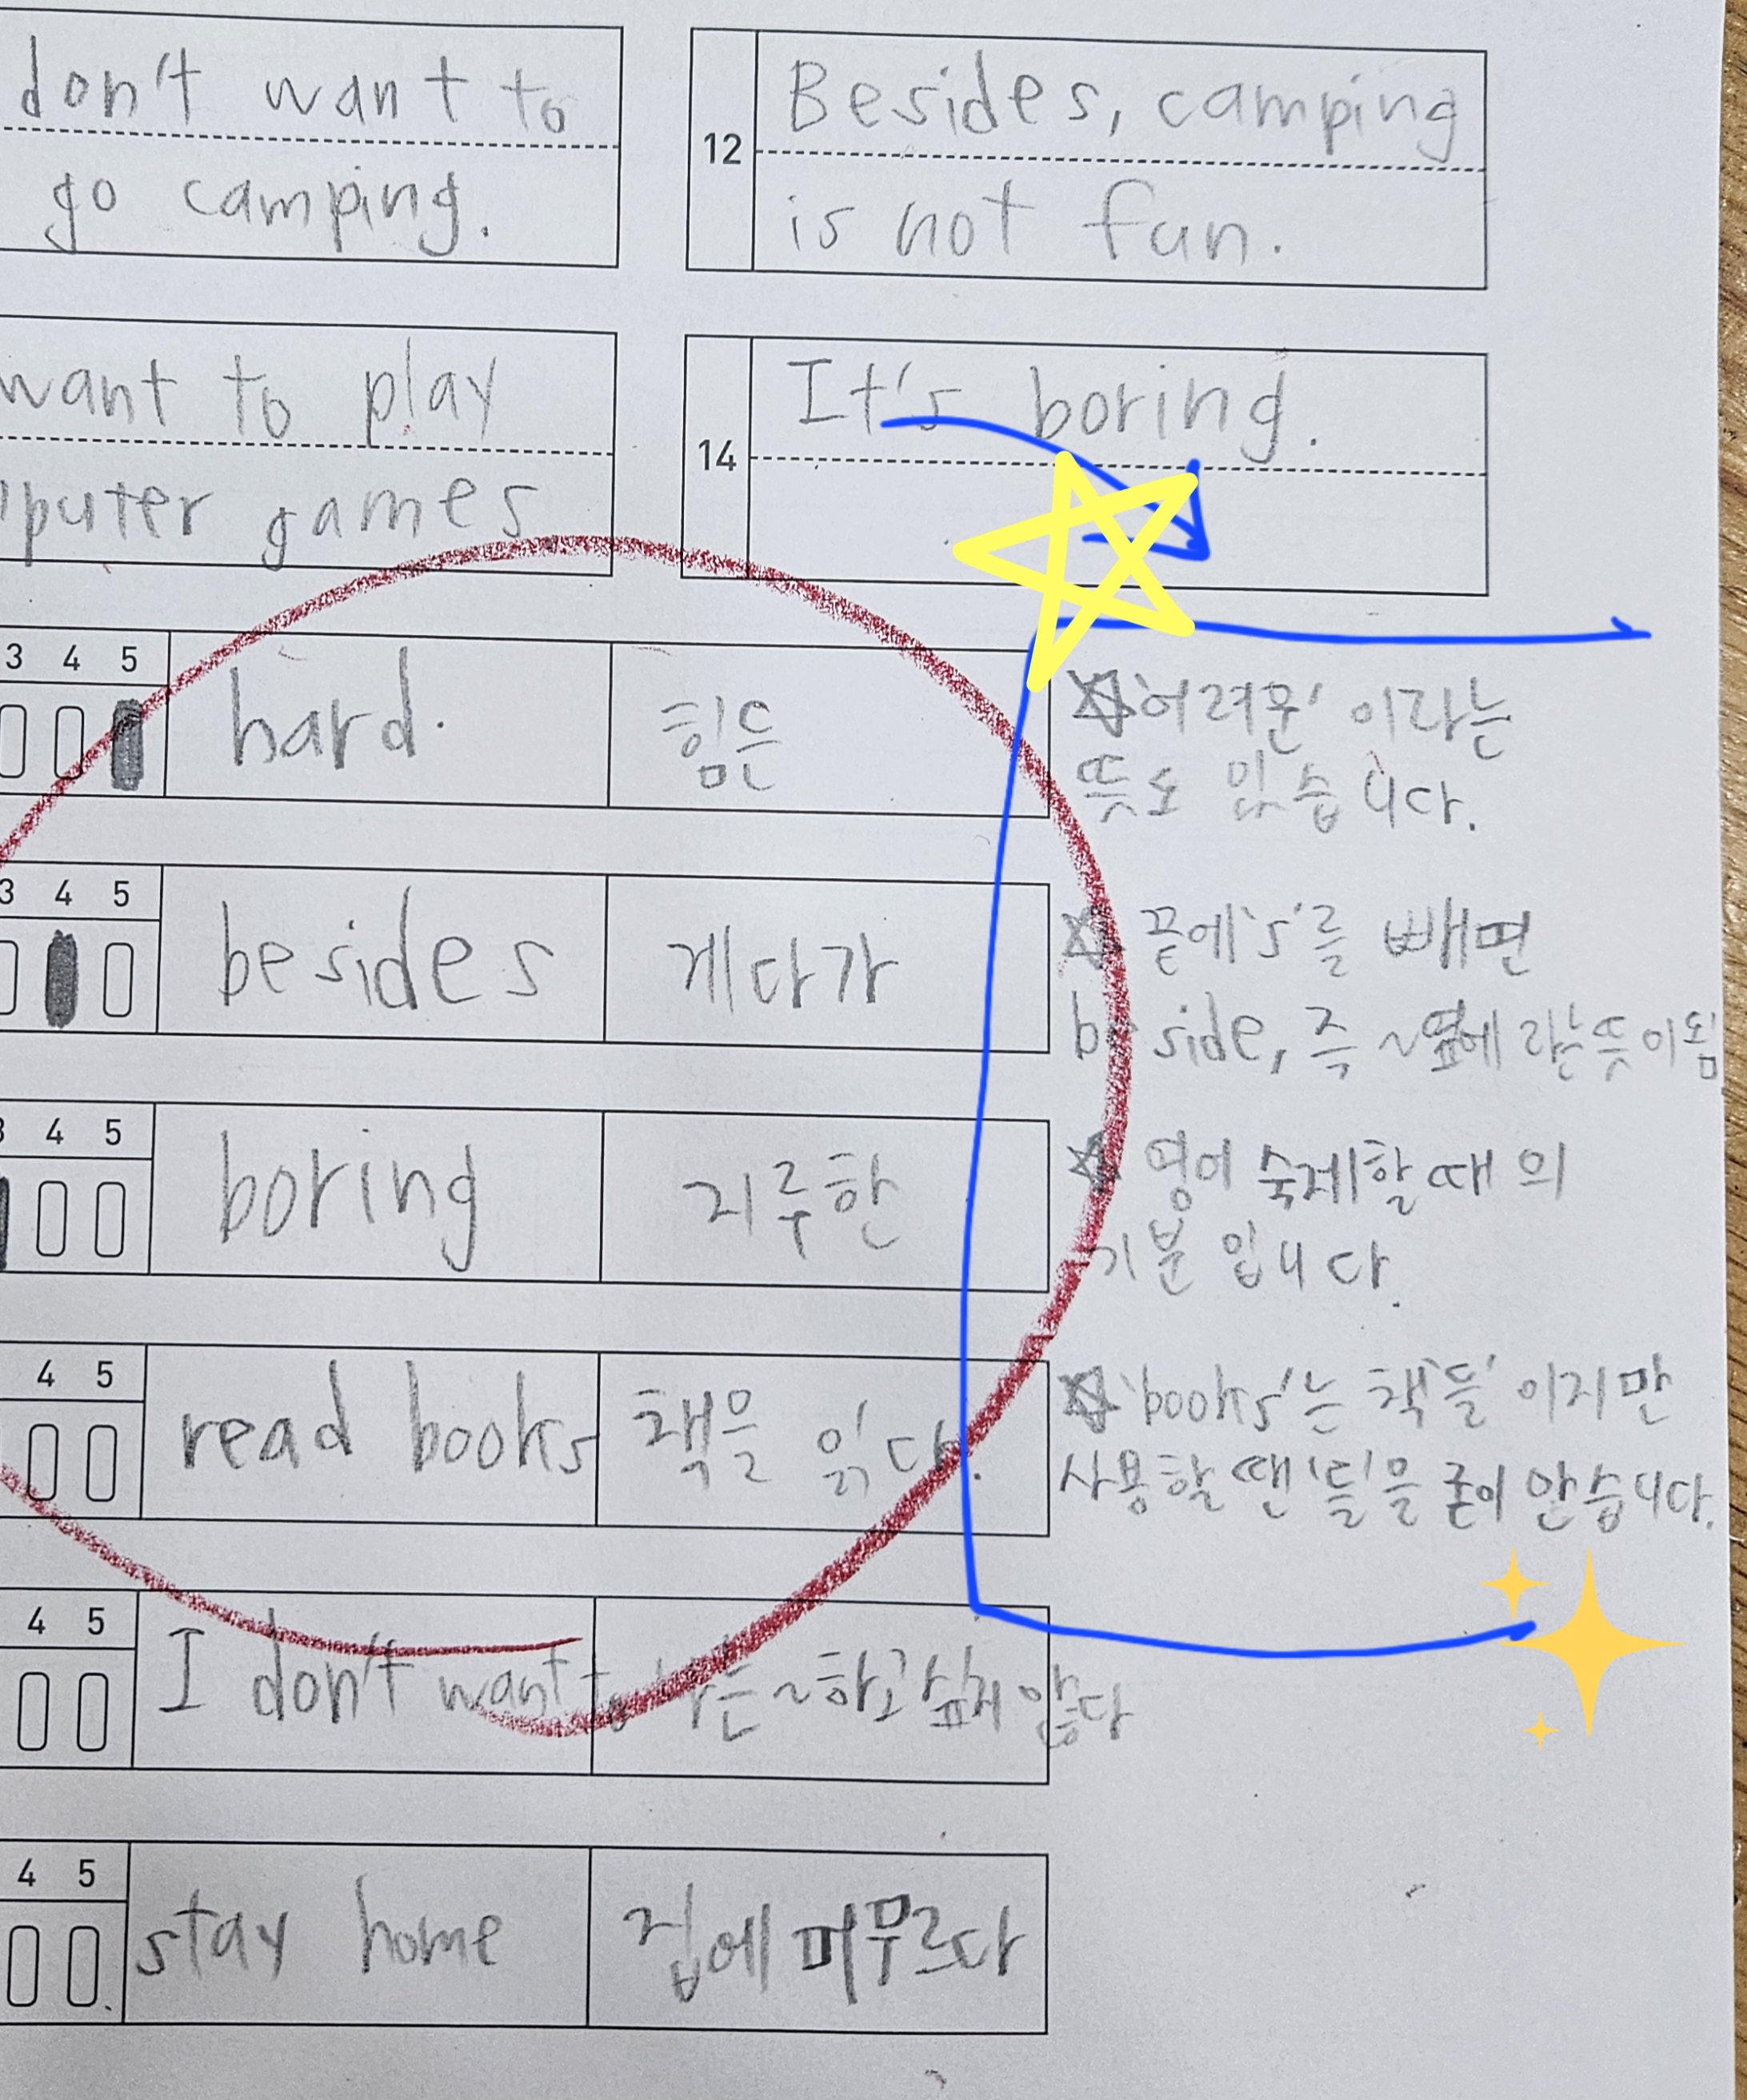 don't want to
go camping.
12
Besides, camping
is not fun.
want to play
puter games.
14
It's boring.
3 4 5
hard.
힘든
☆'어려운' 이라는
뜻도 있습니다.
3 4 5
besides
게다가
☆ 끝에 's'를 빼면
beside, 즉 ~옆에 라는 뜻이 됨
3 4 5
boring
지루한
☆ 영어 숙제할 때의
기분 입니다.
4 5
read books
책을 읽다.
☆'books'는 책'들' 이지만
사용할 땐 '들'을 굳이 안습니다.
4 5
I don't want to
나는 ~하고 싶지 않다
4 5
stay home
집에 머무르다